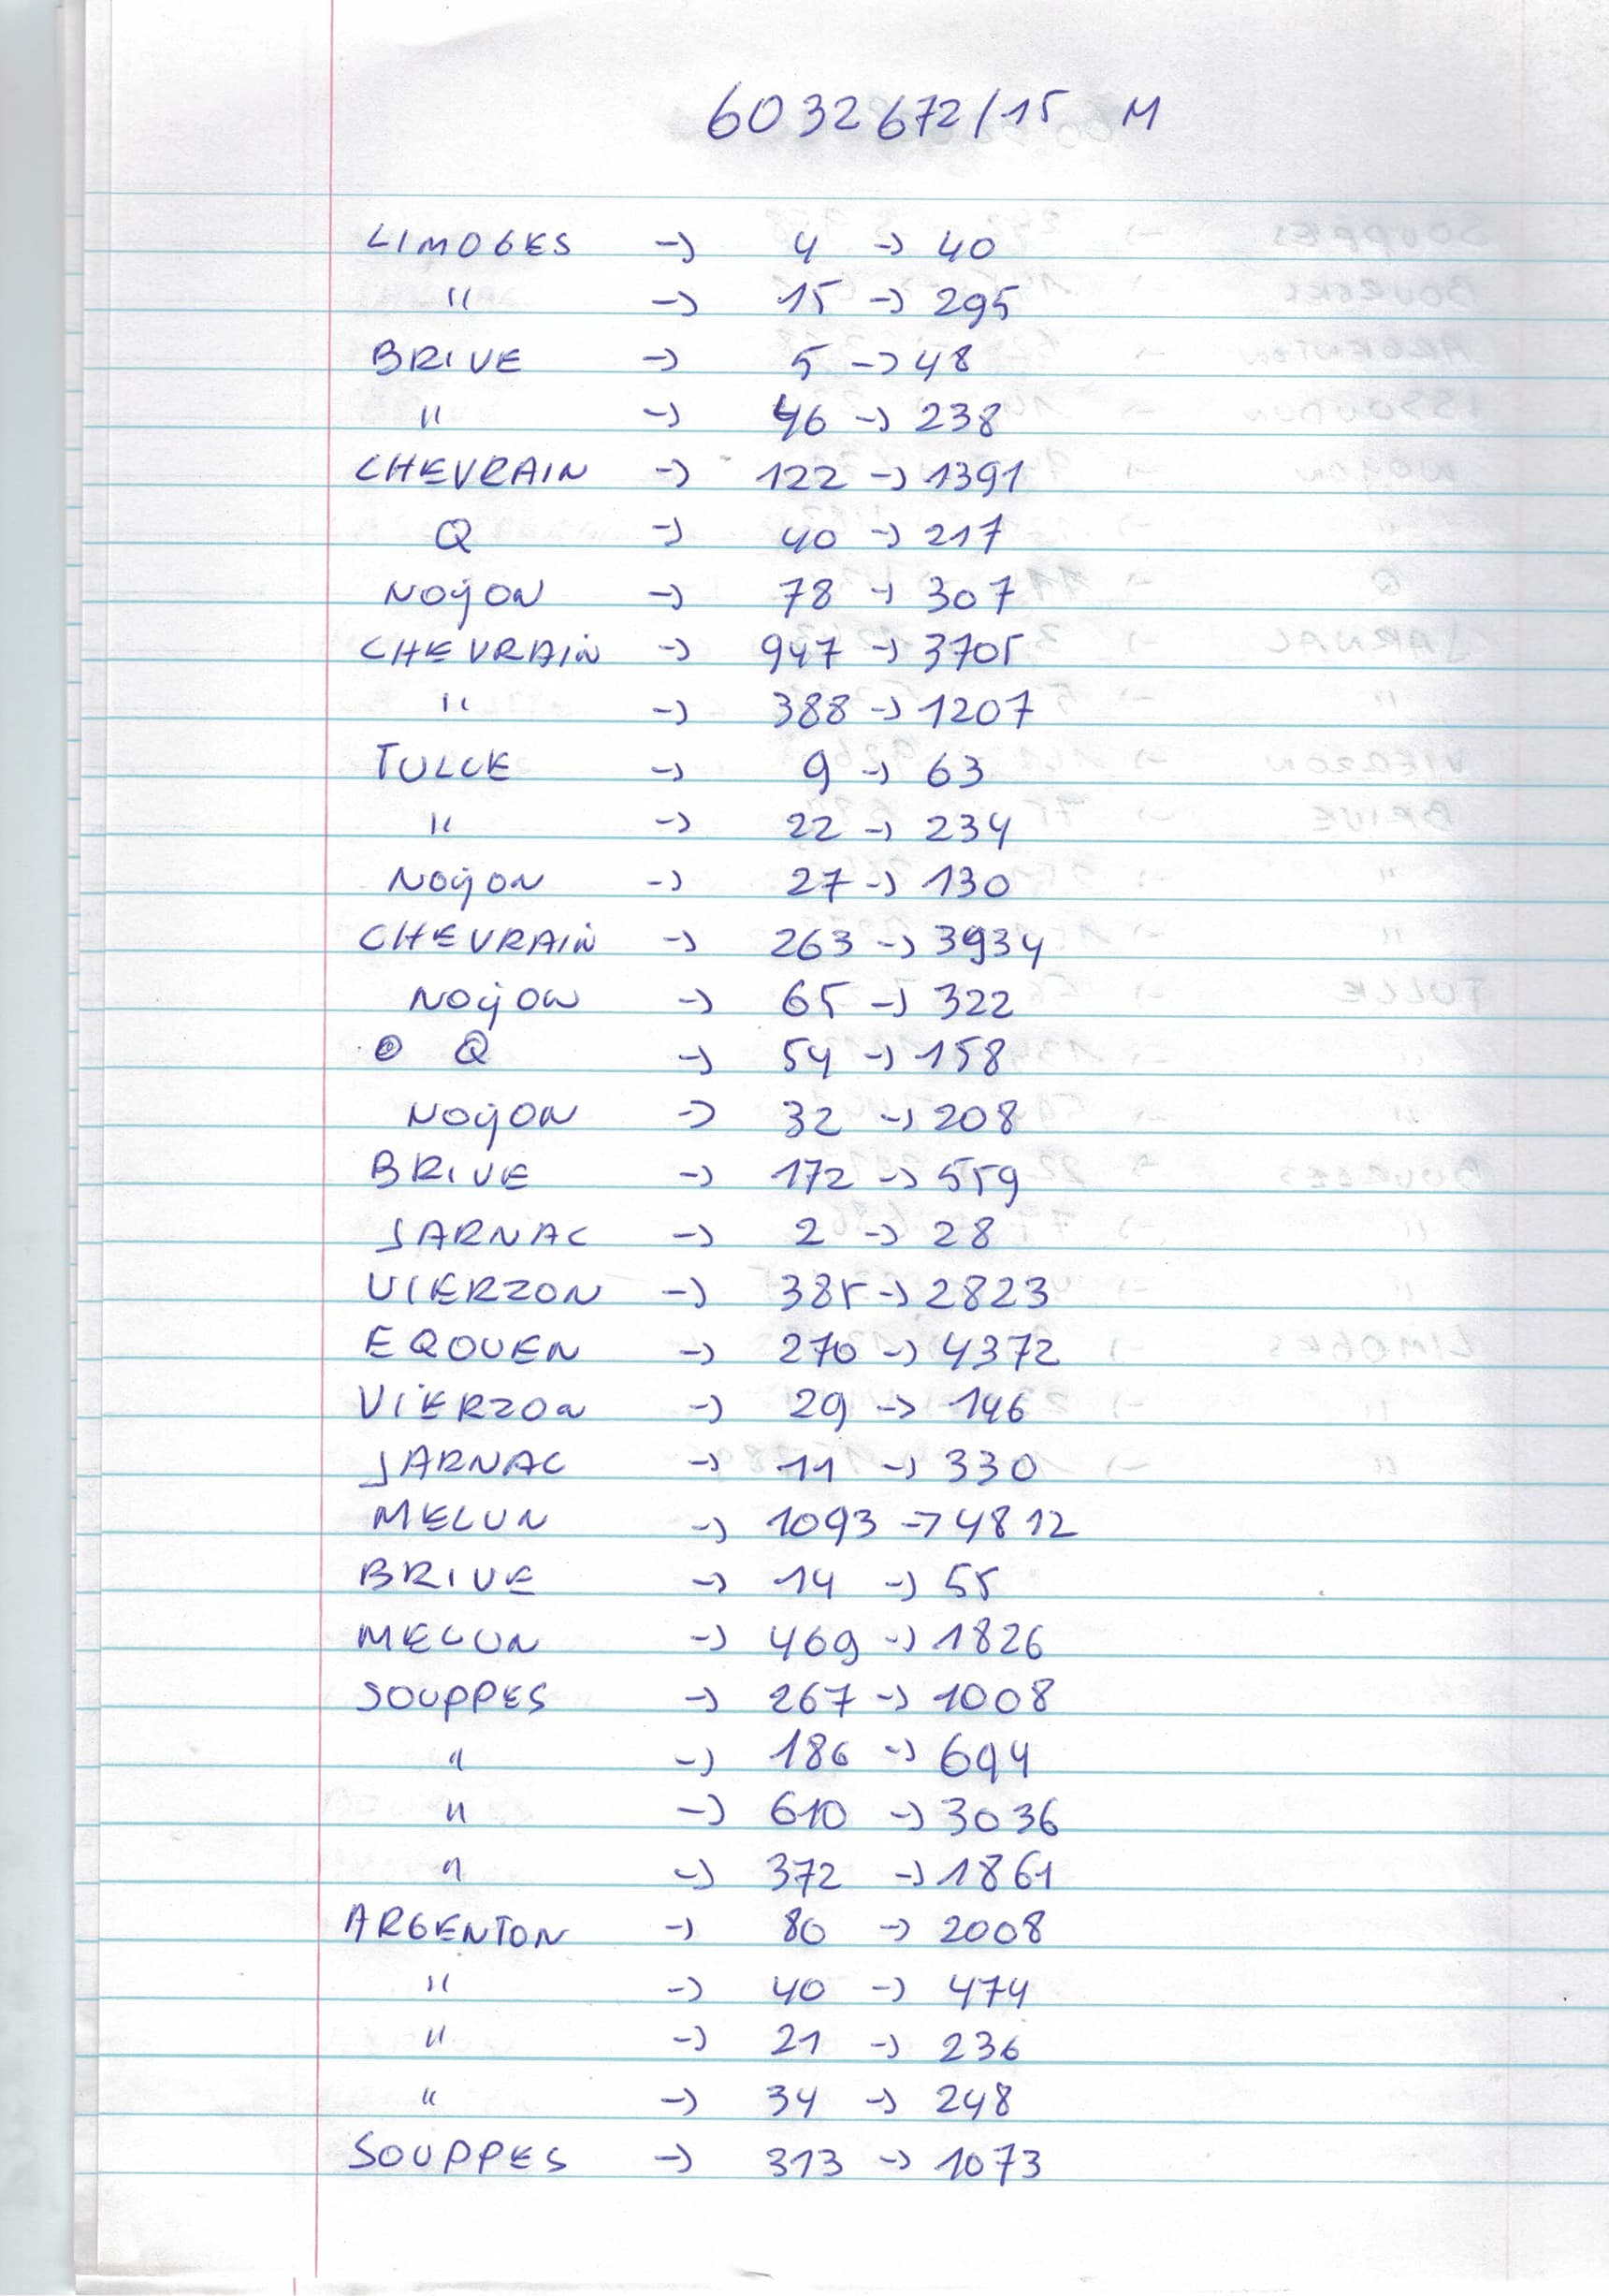 6032672/15 M
LIMOGES -> 4 -> 40
" -> 15 -> 295
BRIVE -> 5 -> 48
" -> 46 -> 238
CHEVRAIN -> 122 -> 1391
Q -> 40 -> 217
NOYON -> 78 -> 307
CHEVRAIN -> 947 -> 3705
" -> 388 -> 1207
TULLE -> 9 -> 63
" -> 22 -> 234
NOYON -> 27 -> 130
CHEVRAIN -> 263 -> 3934
NOYON -> 65 -> 322
Q -> 54 -> 158
NOYON -> 32 -> 208
BRIVE -> 172 -> 559
JARNAC -> 2 -> 28
VIERZON -> 385 -> 2823
EQOUEN -> 270 -> 4372
VIERZON -> 29 -> 146
JARNAC -> 11 -> 330
MELUN -> 1093 -> 4812
BRIVE -> 14 -> 55
MELUN -> 469 -> 1826
SOUPPES -> 267 -> 1008
" -> 186 -> 694
" -> 610 -> 3036
" -> 372 -> 1861
ARGENTON -> 80 -> 2008
" -> 40 -> 474
" -> 21 -> 236
" -> 34 -> 248
SOUPPES -> 313 -> 1073